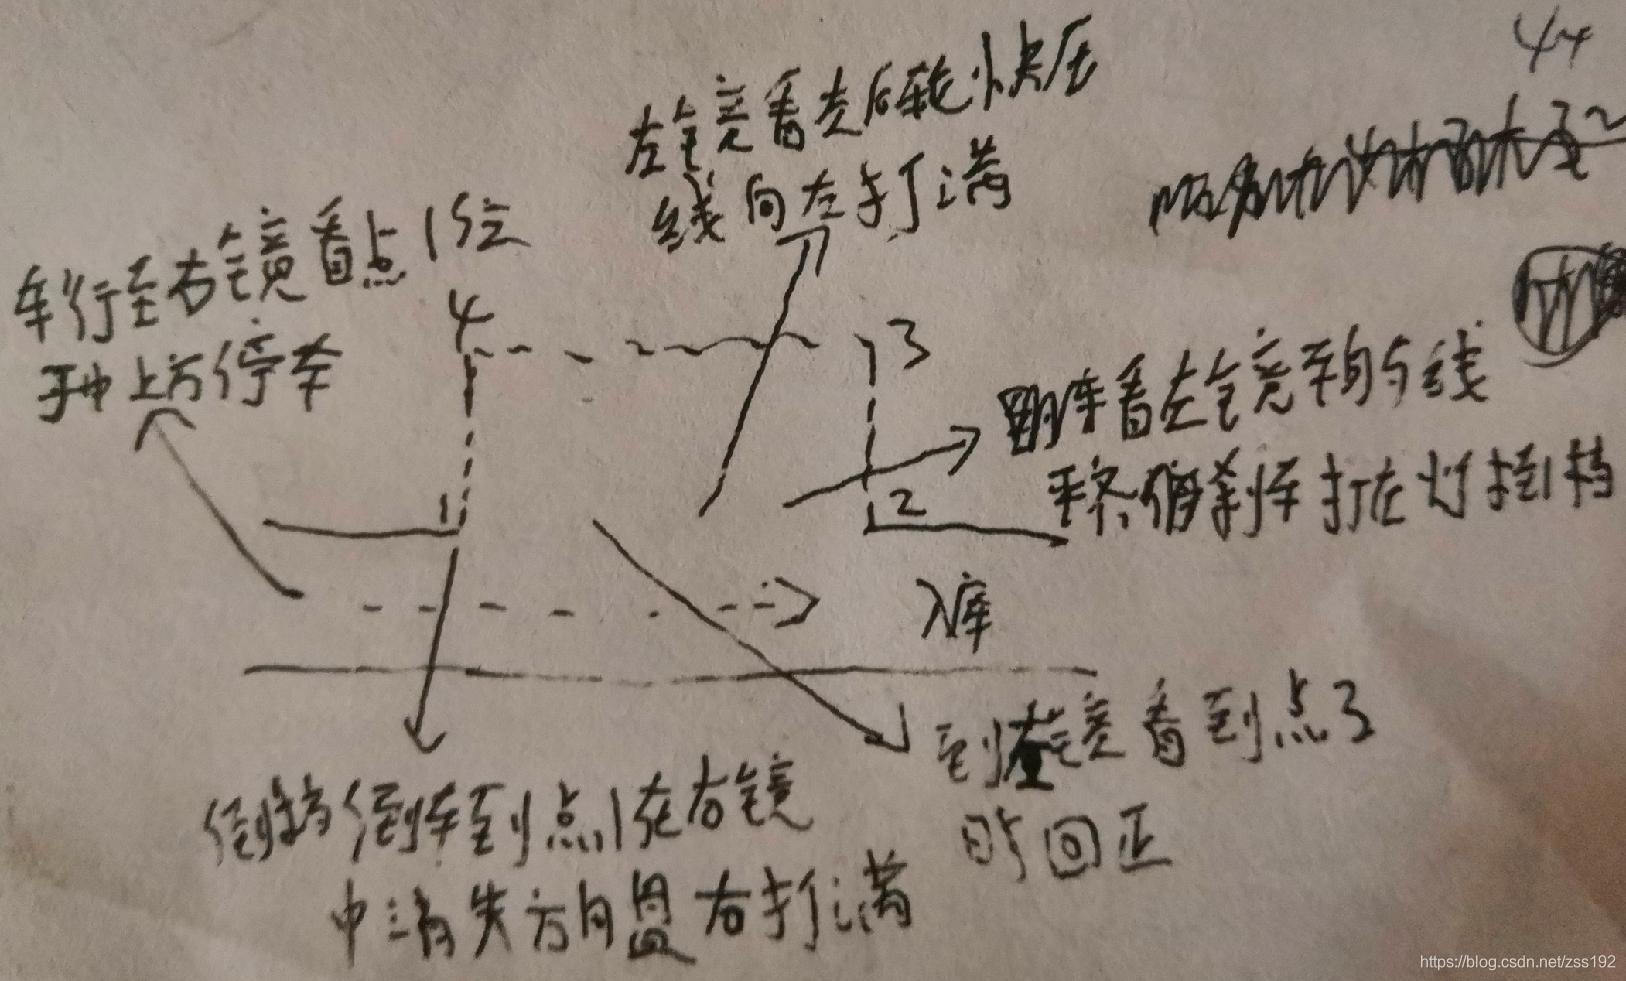 44
左镜看左后轮快压
线向左打满
车行至右镜看点1位
于中上方停车
4
3
1
2
车看左镜车身与线
平齐 刹车打左灯挂档
入库
到左镜看到点3
时回正
倒挡倒车到点1在右镜
中消失方向盘右打满
https://blog.csdn.net/zss192